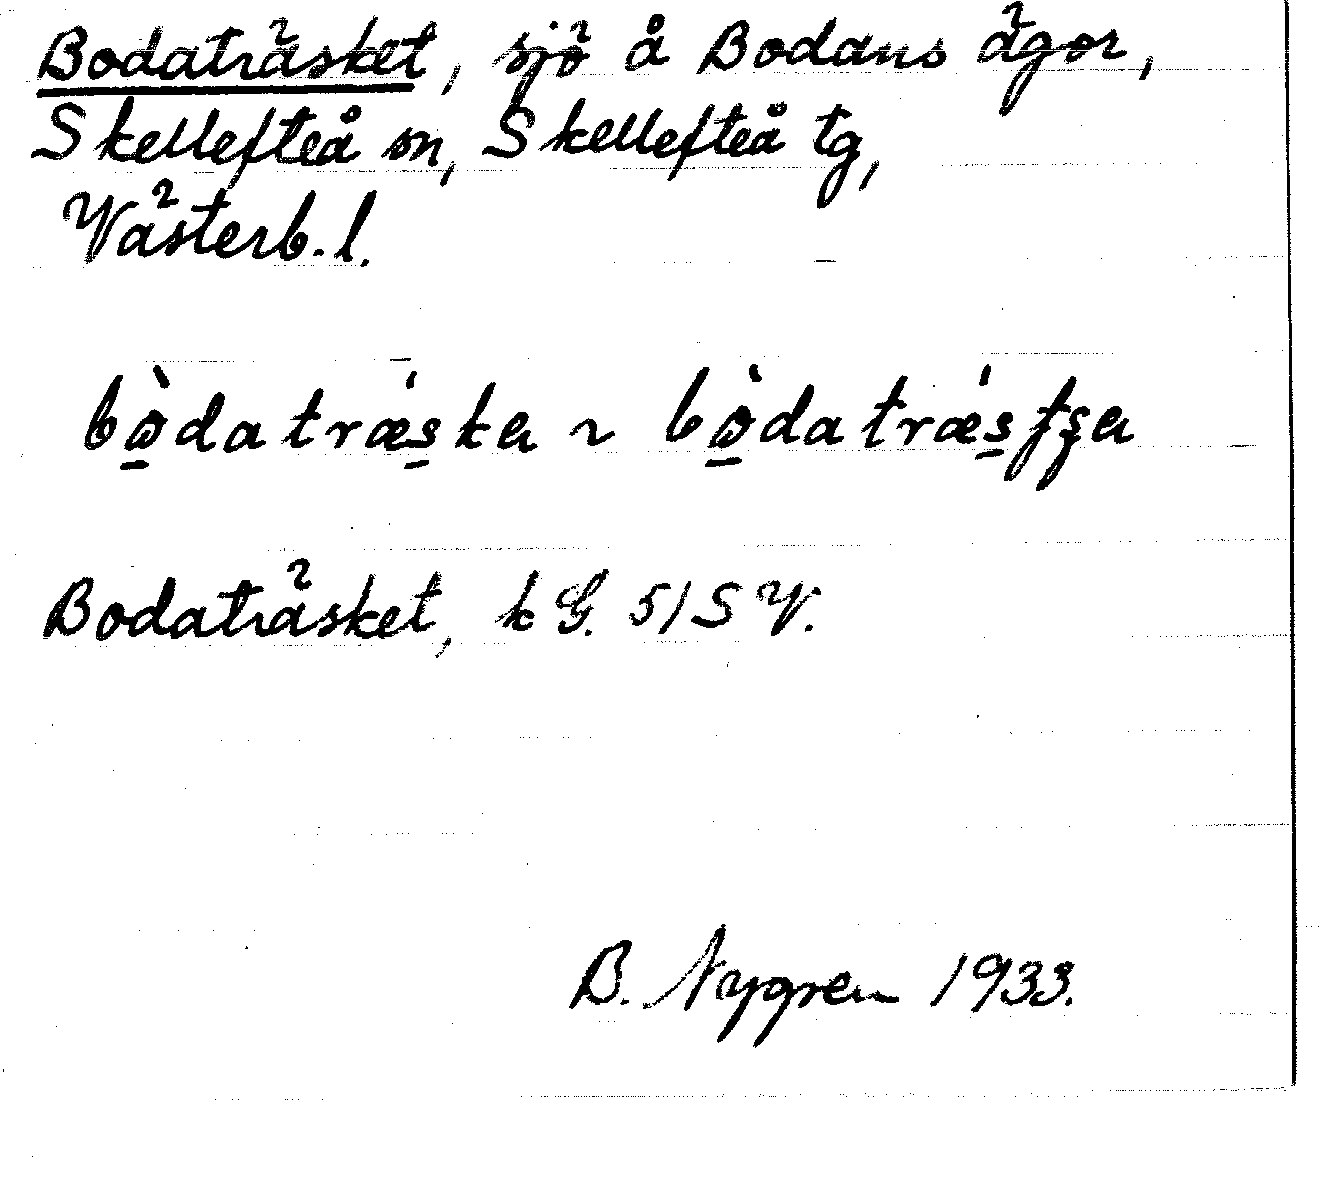 Bodaträsket, sjö å Bodans ägor,
Skellefteå sn, Skellefteå tg,
Västerb. l.
bòdatræ̍ska ~ bòdatræ̍sʈʂa
Bodaträsket, k G. 51 SV.
B. Nygren 1933.